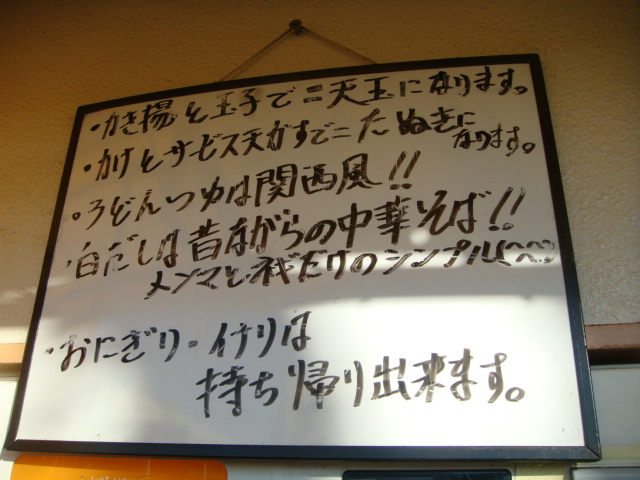 ・かき揚と玉子で=天玉になります。
・かけとサービス天かすで=たぬきに
なります。
・うどんつゆは関西風!!
・白だしは昔ながらの中華そば!!
メンマとネギだけのシンプル(^^)
・おにぎり・イナリは
持ち帰り出来ます。